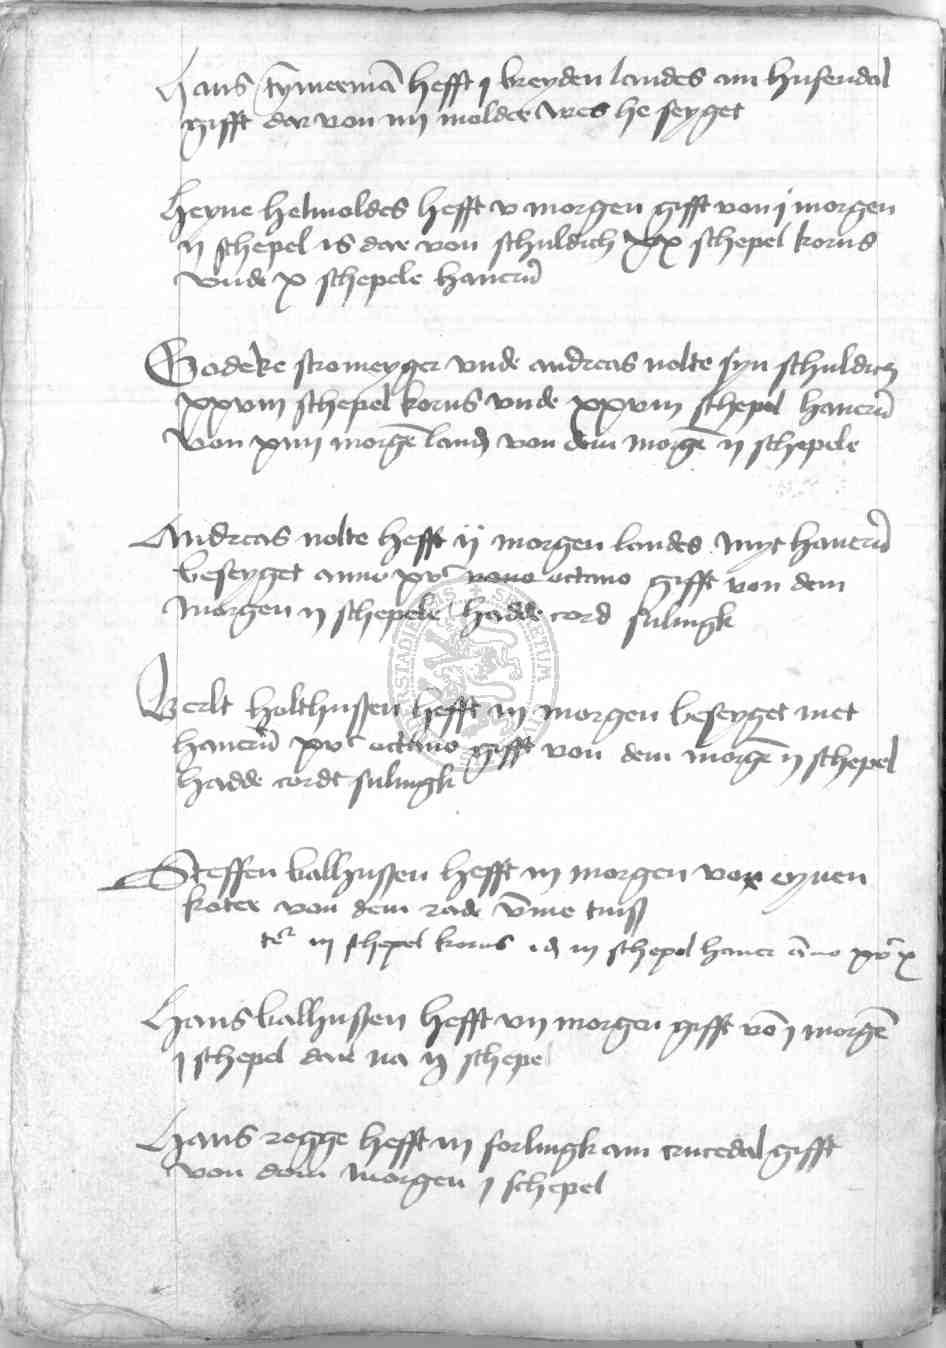 Hans tÿmermā hefft j breyden landes am husendal
gifft dar von iiij molder wes he seyget
Heyne helmoldes hefft v morgen gifft von j morgen
ij schepel is dar von schuldich xx schepel korns
vnde x schepele hauern
Godeke stromeyger vnde andreas nolte syn schuldich
xxviij schepel korns vnde xxviij schepel hauern
von xiiij morgē land von dem morgē ij schepele
Andreas nolte hefft ij morgen landes myt hauern
beseyget anno xvc octauo gifft von dem
morgen ij schepele hadde cord sulingk
Berlt holthussen hefft iij morgen beseyget met
hauern xvc octauo gifft von dem morgē ij schepel
hadde cordt sulingk
Steffen balhussen hefft iij morgen vor eynen
koter von dem rade vme tinß
iij schepel korns iij schepel hauer āno xvc x
Hans balhussen hefft vij morgen gifft vō j morgē
j schepel dar na ij schepel
Hans rogge hefft iij forlingk am crucedal gifft
von dem morgen j schepel